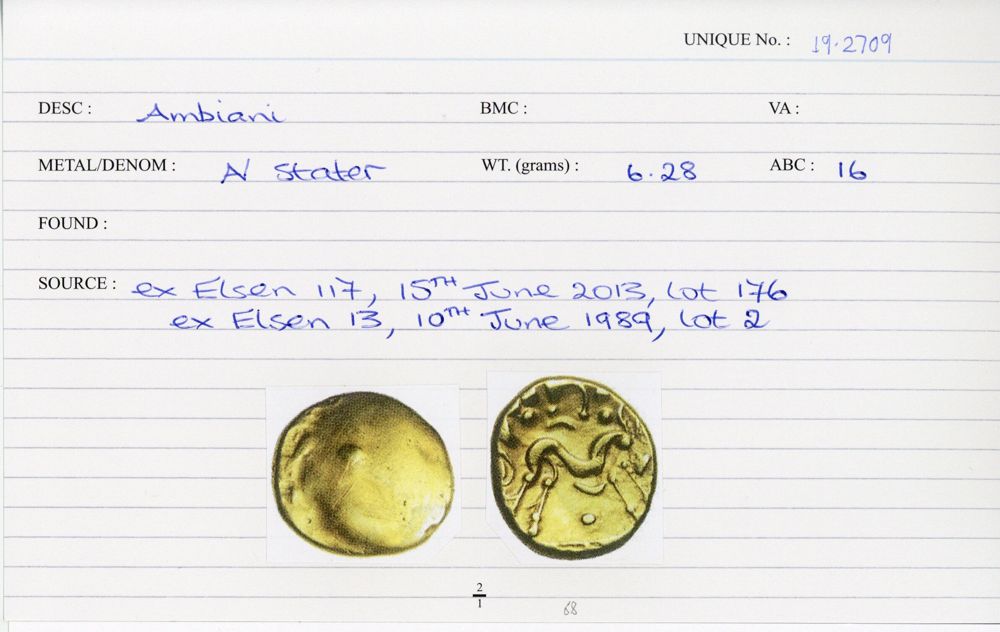 UNIQUE No. : 19.2709
DESC : Ambiani BMC : VA :
METAL/DENOM : AV Stater WT. (grams) : 6.28 ABC : 16
FOUND :
SOURCE : ex Elsen 117, 15TH June 2013, lot 176
ex Elsen 13, 10TH June 1989, lot 2
2
1
68